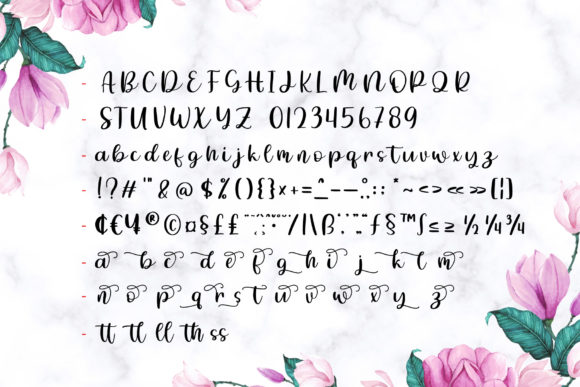 - ABCDEFGHIJKLMNOPQR
- STUVWXYZ 0123456789
- abcdefghijklmnopqrstuvwxyz
- !?#'"&@$%(){}×+=^_–—:;:: *~<>«»[|]
- ¢€¥®©¤§££ /|\ß ƒ§™∫≤≥ ½¼¾
- a b c d e f g h i j k l m
- n o p q r s t u v w x y z
- tt tl ll th ss